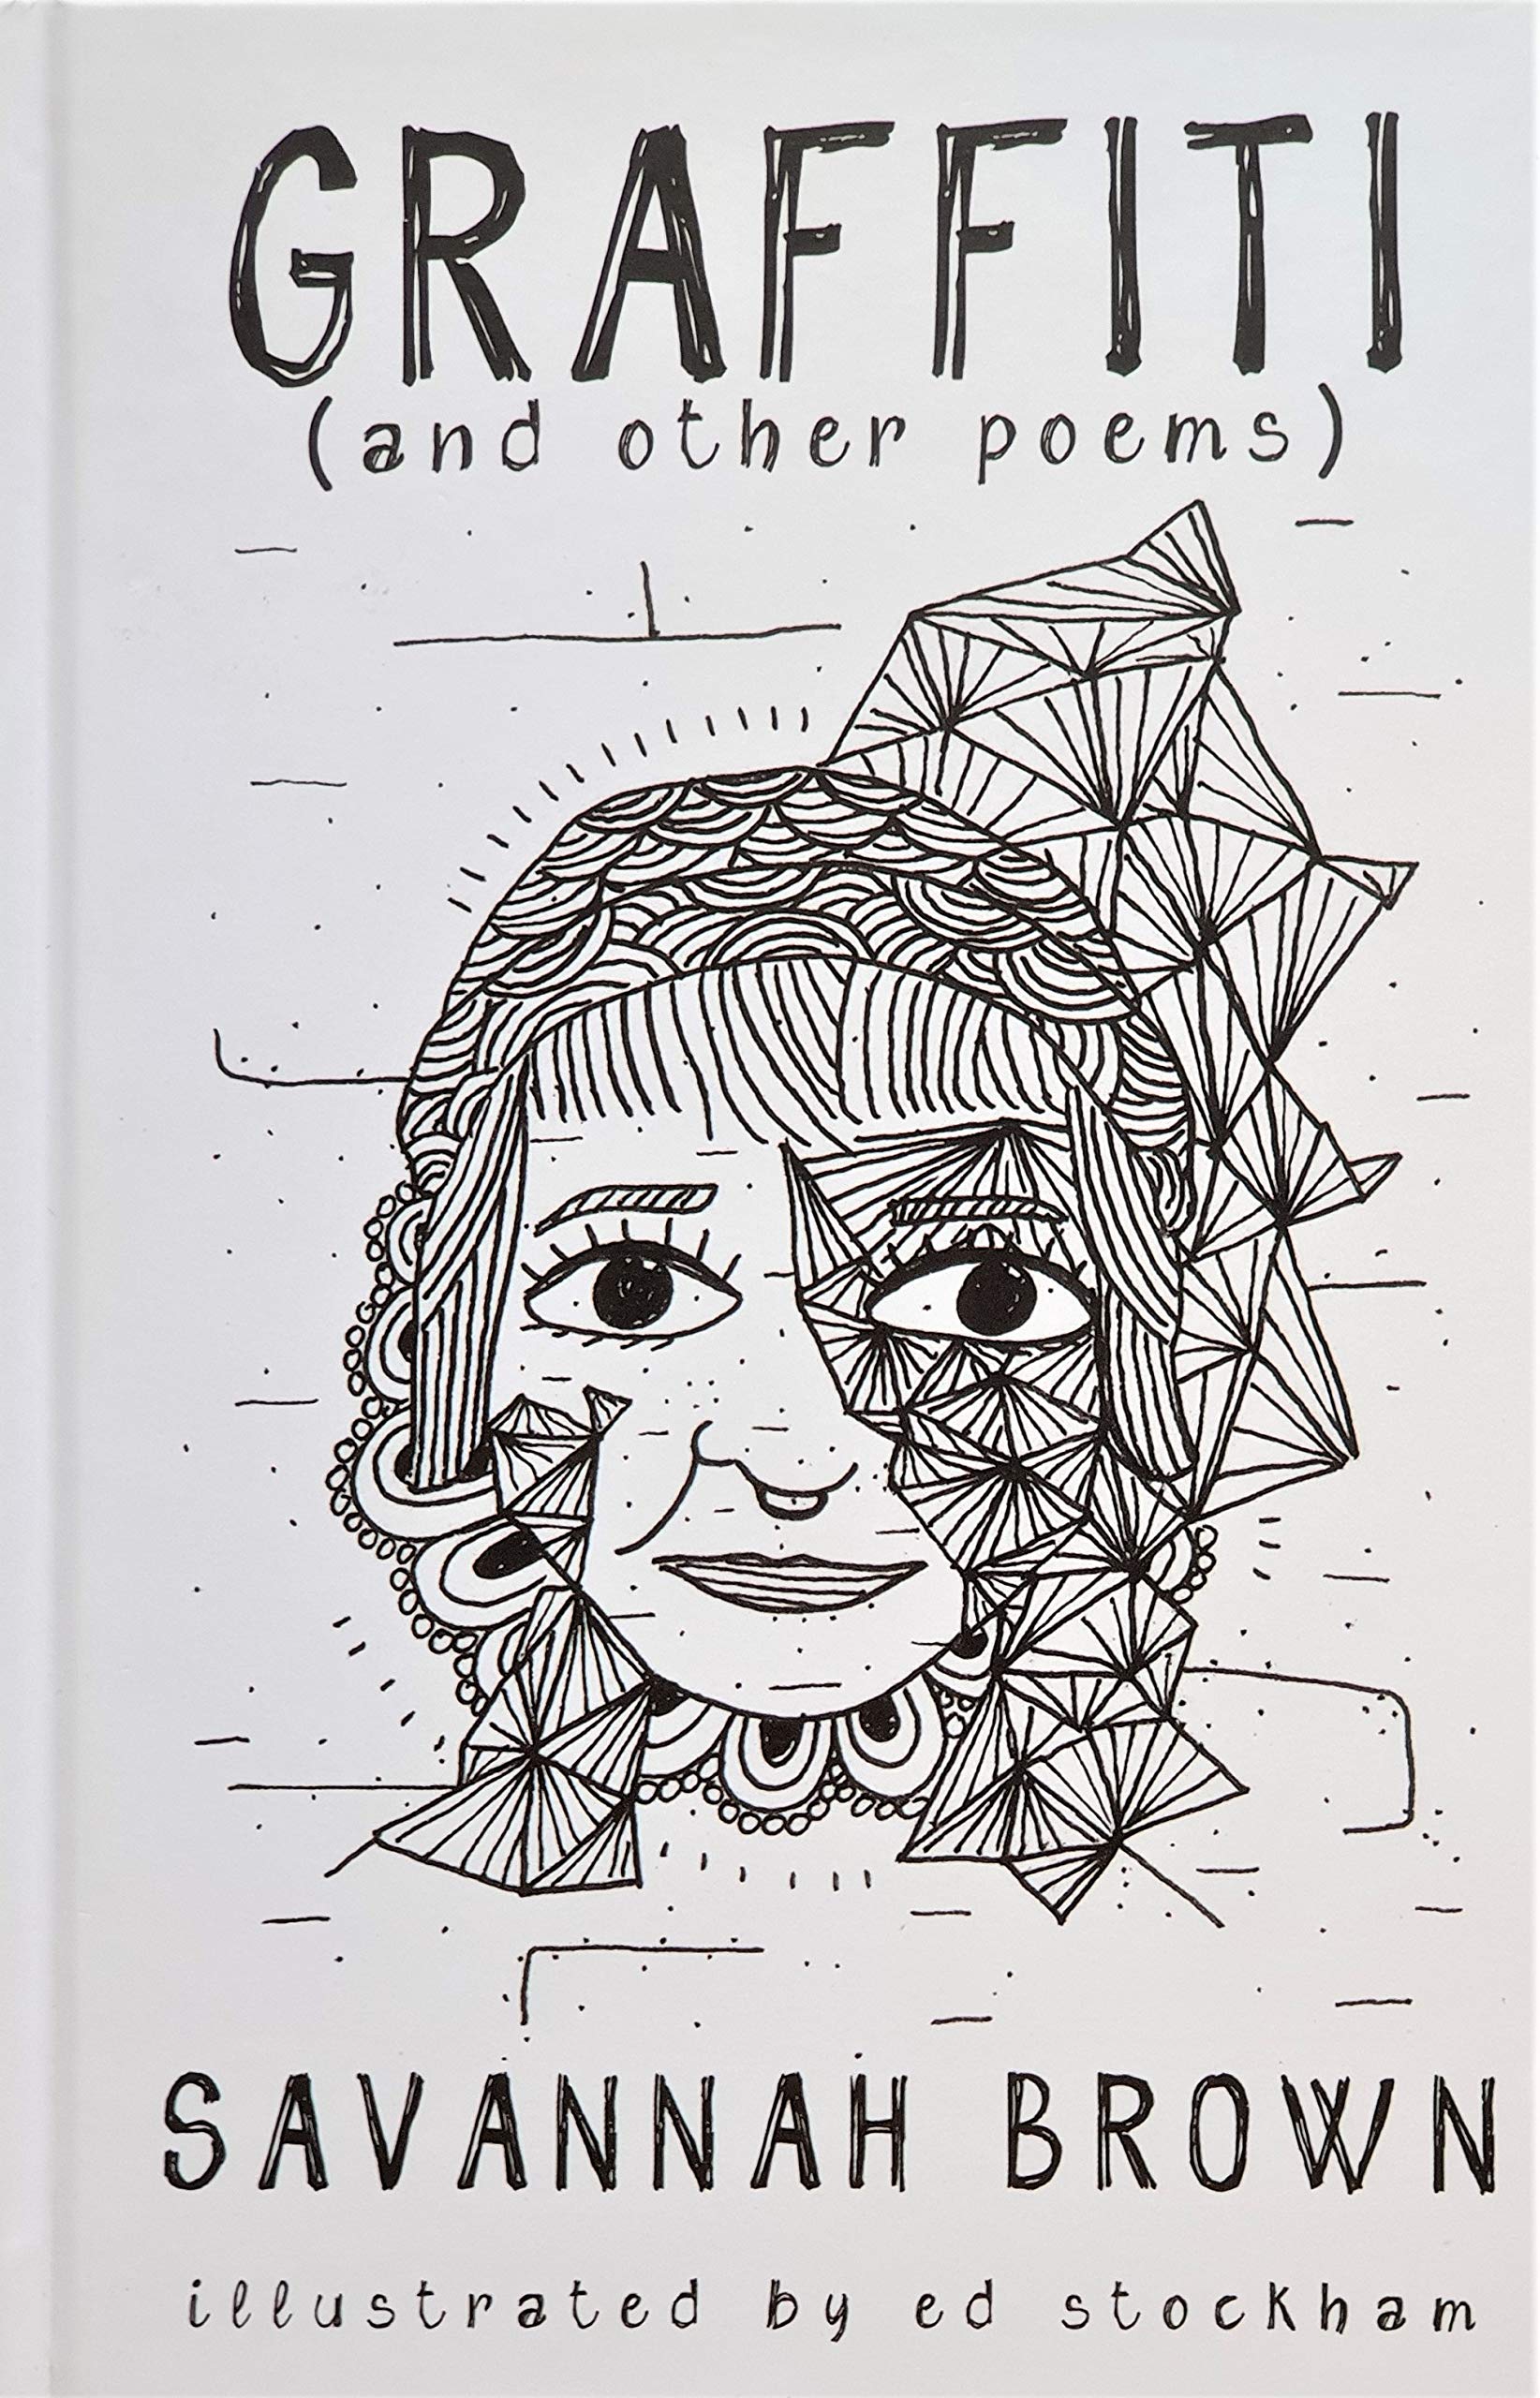 GRAFFITI
(and other poems)
SAVANNAH BROWN
illustrated by ed stockham